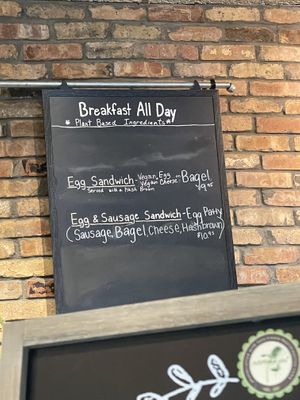 Breakfast All Day
* Plant Based Ingredients *
Egg Sandwich - Vegan Egg, Vegan Cheese on Bagel
Served with a Hash Brown $9.95
Egg & Sausage Sandwich - Egg Patty
(Sausage, Bagel, Cheese, Hashbrown)
$10.95